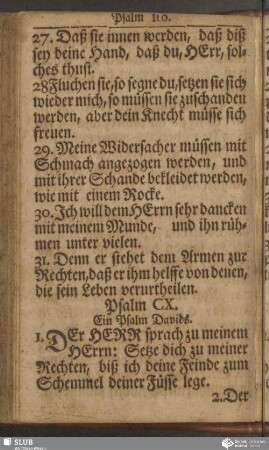 Psalm 110.
27. Daß sie innen werden, daß diß
sey deine Hand, daß du, HErr, sol-
ches thust.
28 Fluchen sie, so segne du, setzen sie sich
wieder mich, so müssen sie zuschanden
werden, aber dein Knecht müsse sich
freuen.
29. Meine Widersacher müssen mit
Schmach angezogen werden, und
mit ihrer Schande bekleidet werden,
wie mit einem Rocke.
30. Ich will dem HErrn sehr dancken
mit meinem Munde, und ihn rüh-
men unter vielen.
31. Denn er stehet dem Armen zur
Rechten, daß er ihm helffe von denen,
die sein Leben verurtheilen.
Psalm CX.
Ein Psalm Davids.
1. DEr HERR sprach zu meinem
HErrn: Setze dich zu meiner
Rechten, biß ich deine Feinde zum
Schemmel deiner Füsse lege.
2. Der
SLUB